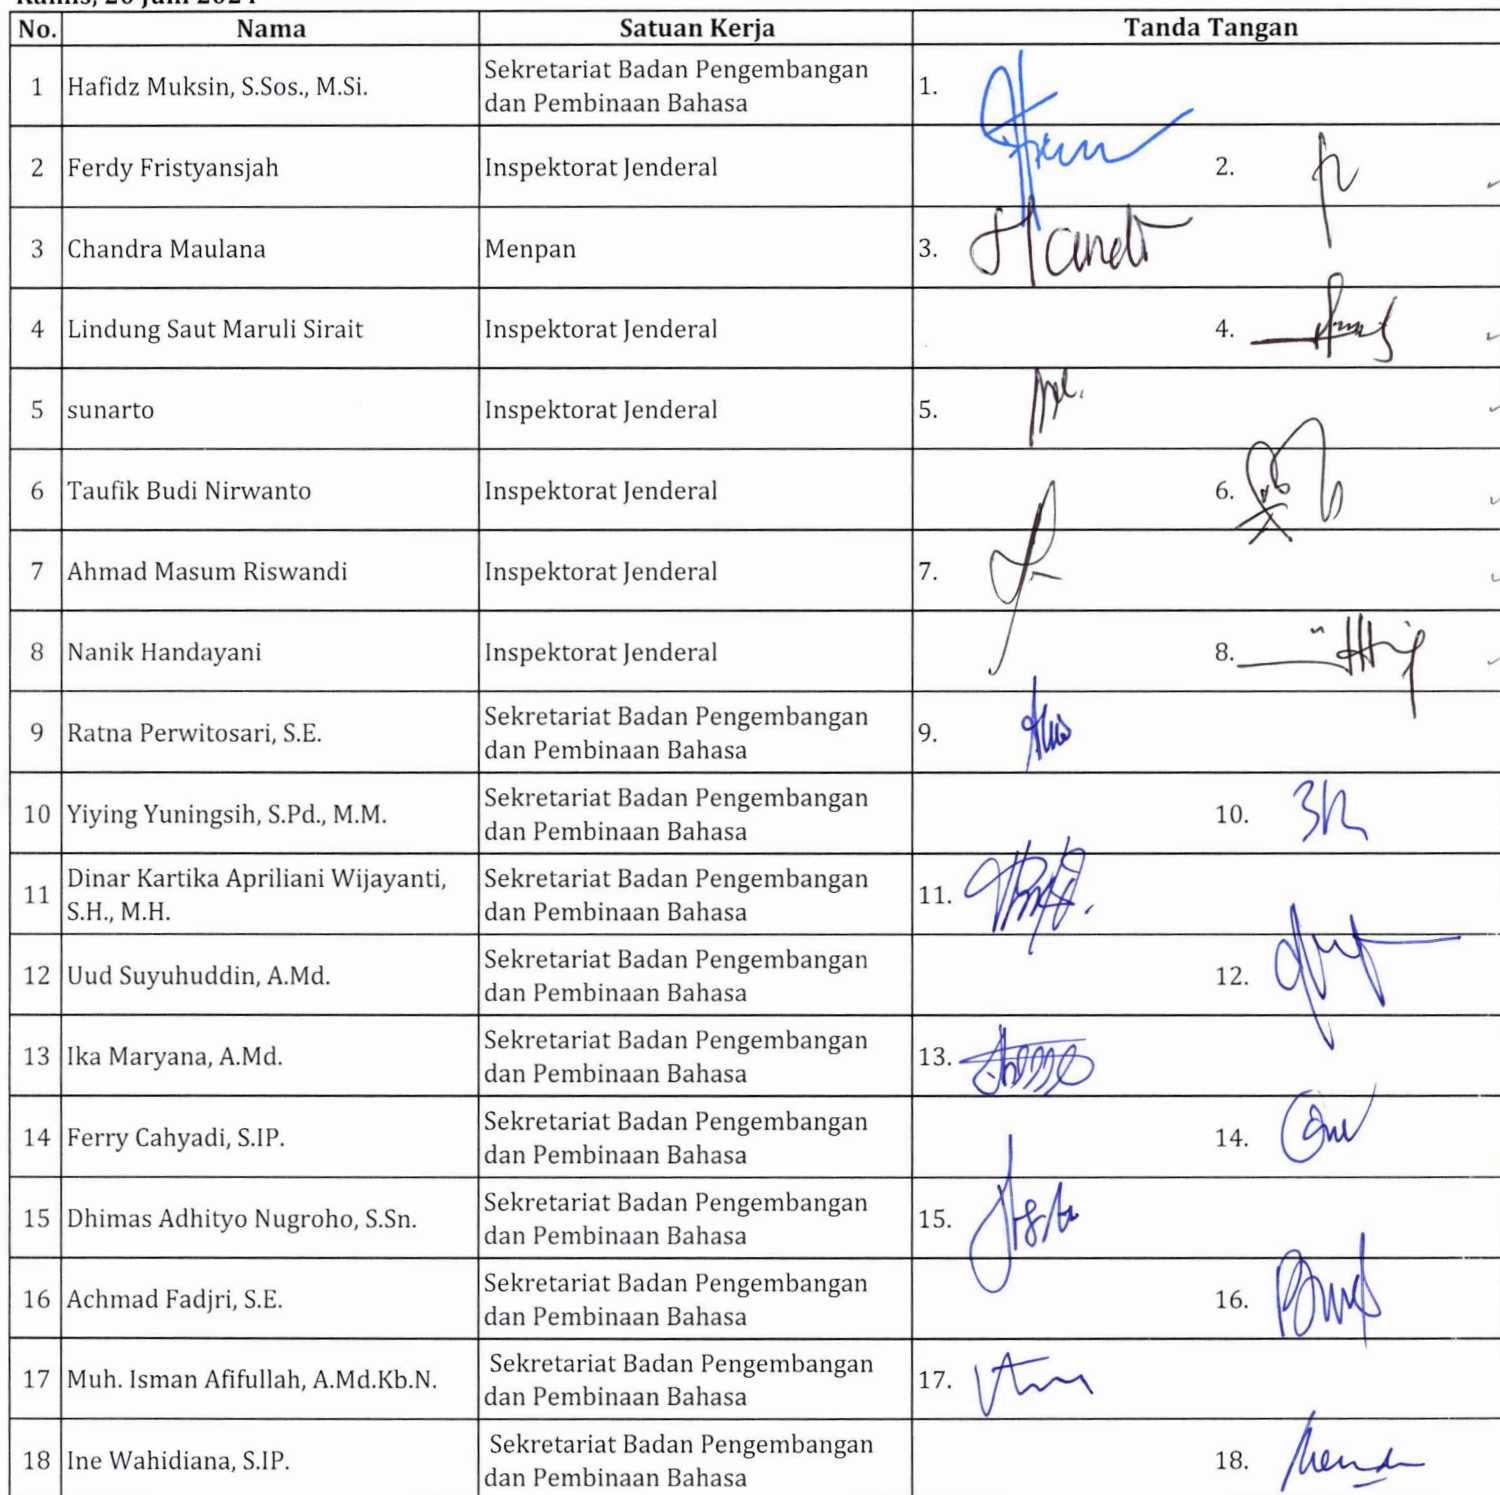 Kamis, 20 Juni 2024
No. Nama Satuan Kerja Tanda Tangan
1 Hafidz Muksin, S.Sos., M.Si. Sekretariat Badan Pengembangan
dan Pembinaan Bahasa 1.
2 Ferdy Fristyansjah Inspektorat Jenderal 2.
3 Chandra Maulana Menpan 3.
4 Lindung Saut Maruli Sirait Inspektorat Jenderal 4.
5 sunarto Inspektorat Jenderal 5.
6 Taufik Budi Nirwanto Inspektorat Jenderal 6.
7 Ahmad Masum Riswandi Inspektorat Jenderal 7.
8 Nanik Handayani Inspektorat Jenderal 8.
9 Ratna Perwitosari, S.E. Sekretariat Badan Pengembangan
dan Pembinaan Bahasa 9.
10 Yiying Yuningsih, S.Pd., M.M. Sekretariat Badan Pengembangan
dan Pembinaan Bahasa 10.
11 Dinar Kartika Apriliani Wijayanti, Sekretariat Badan Pengembangan
S.H., M.H. dan Pembinaan Bahasa 11.
12 Uud Suyuhuddin, A.Md. Sekretariat Badan Pengembangan
dan Pembinaan Bahasa 12.
13 Ika Maryana, A.Md. Sekretariat Badan Pengembangan
dan Pembinaan Bahasa 13.
14 Ferry Cahyadi, S.IP. Sekretariat Badan Pengembangan
dan Pembinaan Bahasa 14.
15 Dhimas Adhityo Nugroho, S.Sn. Sekretariat Badan Pengembangan
dan Pembinaan Bahasa 15.
16 Achmad Fadjri, S.E. Sekretariat Badan Pengembangan
dan Pembinaan Bahasa 16.
17 Muh. Isman Afifullah, A.Md.Kb.N. Sekretariat Badan Pengembangan
dan Pembinaan Bahasa 17.
18 Ine Wahidiana, S.IP. Sekretariat Badan Pengembangan
dan Pembinaan Bahasa 18.